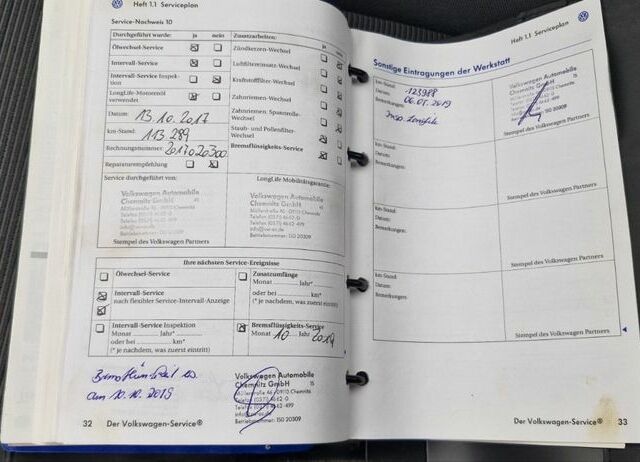 Heft 1.1 Serviceplan
Service-Nachweis 10
Durchgeführt wurde: ja nein Zusatzarbeiten: ja
Ölwechsel-Service Zündkerzen-Wechsel
Intervall-Service Luftfiltereinsatz-Wechsel
Intervall-Service Inspek-
tion Kraftstofffilter-Wechsel
LongLife-Motorenöl
verwendet Zahnriemen-Wechsel
Datum: 13.10.2017 Zahnriemen, Spannrolle-
Wechsel
km-Stand: 113.289 Staub- und Pollenfilter-
Wechsel
Rechnungsnummer: 201702030 Bremsflüssigkeits-Service
Reparaturempfehlung
Service durchgeführt von: LongLife Mobilitätsgarantie:
Volkswagen Automobile
Chemnitz GmbH
Volkswagen Automobile
Chemnitz GmbH
Stempel des Volkswagen Partners Stempel des Volkswagen Partners
Ihre nächsten Service-Ereignisse
Ölwechsel-Service Zusatzumfänge
Monat Jahr*
Intervall-Service
nach flexibler Service-Intervall-Anzeige oder bei km*
(* je nachdem, was zuerst eintritt)
Intervall-Service Inspektion Bremsflüssigkeits-Service
Monat Jahr* Monat 10 Jahr 2019
oder bei km*
(* je nachdem, was zuerst eintritt)
am 10.10.2019
Volkswagen Automobile
Chemnitz GmbH 15
Betriebsnummer: ISO 20309
32 Der Volkswagen-Service®
Heft 1.1 Serviceplan
Sonstige Eintragungen der Werkstatt
km-Stand: 123988
Datum: 06.05.2019
Bemerkungen:
Volkswagen Automobile
Chemnitz GmbH
Stempel des Volkswagen Partners
km-Stand:
Datum:
Bemerkungen:
Stempel des Volkswagen Partners
km-Stand:
Datum:
Bemerkungen:
Stempel des Volkswagen Partners
km-Stand:
Datum:
Bemerkungen:
Stempel des Volkswagen Partners
Der Volkswagen-Service® 33